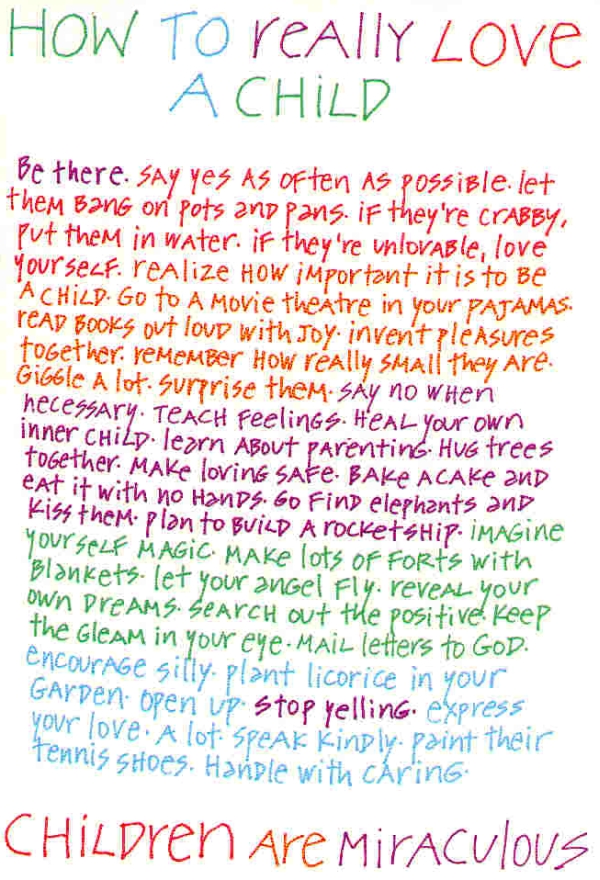 HOW TO reALLY LOVE
A CHiLD
Be there. SAY yes AS oFten AS possiBle. let
theM BanG on pots anD pans. iF they're crABBY,
put theM in wAter. iF they're unlovABle, love
yourseLF. reAlize HOW iMportant it is to Be
A CHiLD. Go to A Movie theAtre in your PAJAMAS.
reAD BOOKS out louD with JOY. invent pleAsures
toGether. reMeMBer HOW reAlly SMAll they Are.
GiGGle A lot. Surprise theM. SAY no WHen
necessAry. TeACH FeelinGs. HeAL your own
inner CHiLD. leArn ABout PArentinG. HuG trees
toGether. MAKe lovinG SAFe. BAKe A CAKe anD
eAt it with no HanDs. Go FinD elepHants anD
Kiss theM. plan to BuilD A rocKetsHip. iMAGine
yourseLF MAGiC. MAKe lots oF Forts with
BlanKets. let your anGel Fly. reveAL your
own DreAMs. SeArCH out the positive. Keep
the GleAM in your eye. MAiL letters to GoD.
encourAGe silly. plant licorice in your
GArDen. open up. stop yellinG. express
your love. A lot. SpeAK KinDly. paint their
tennis sHoes. HanDle with cArinG.
CHiLDren Are MirACulous